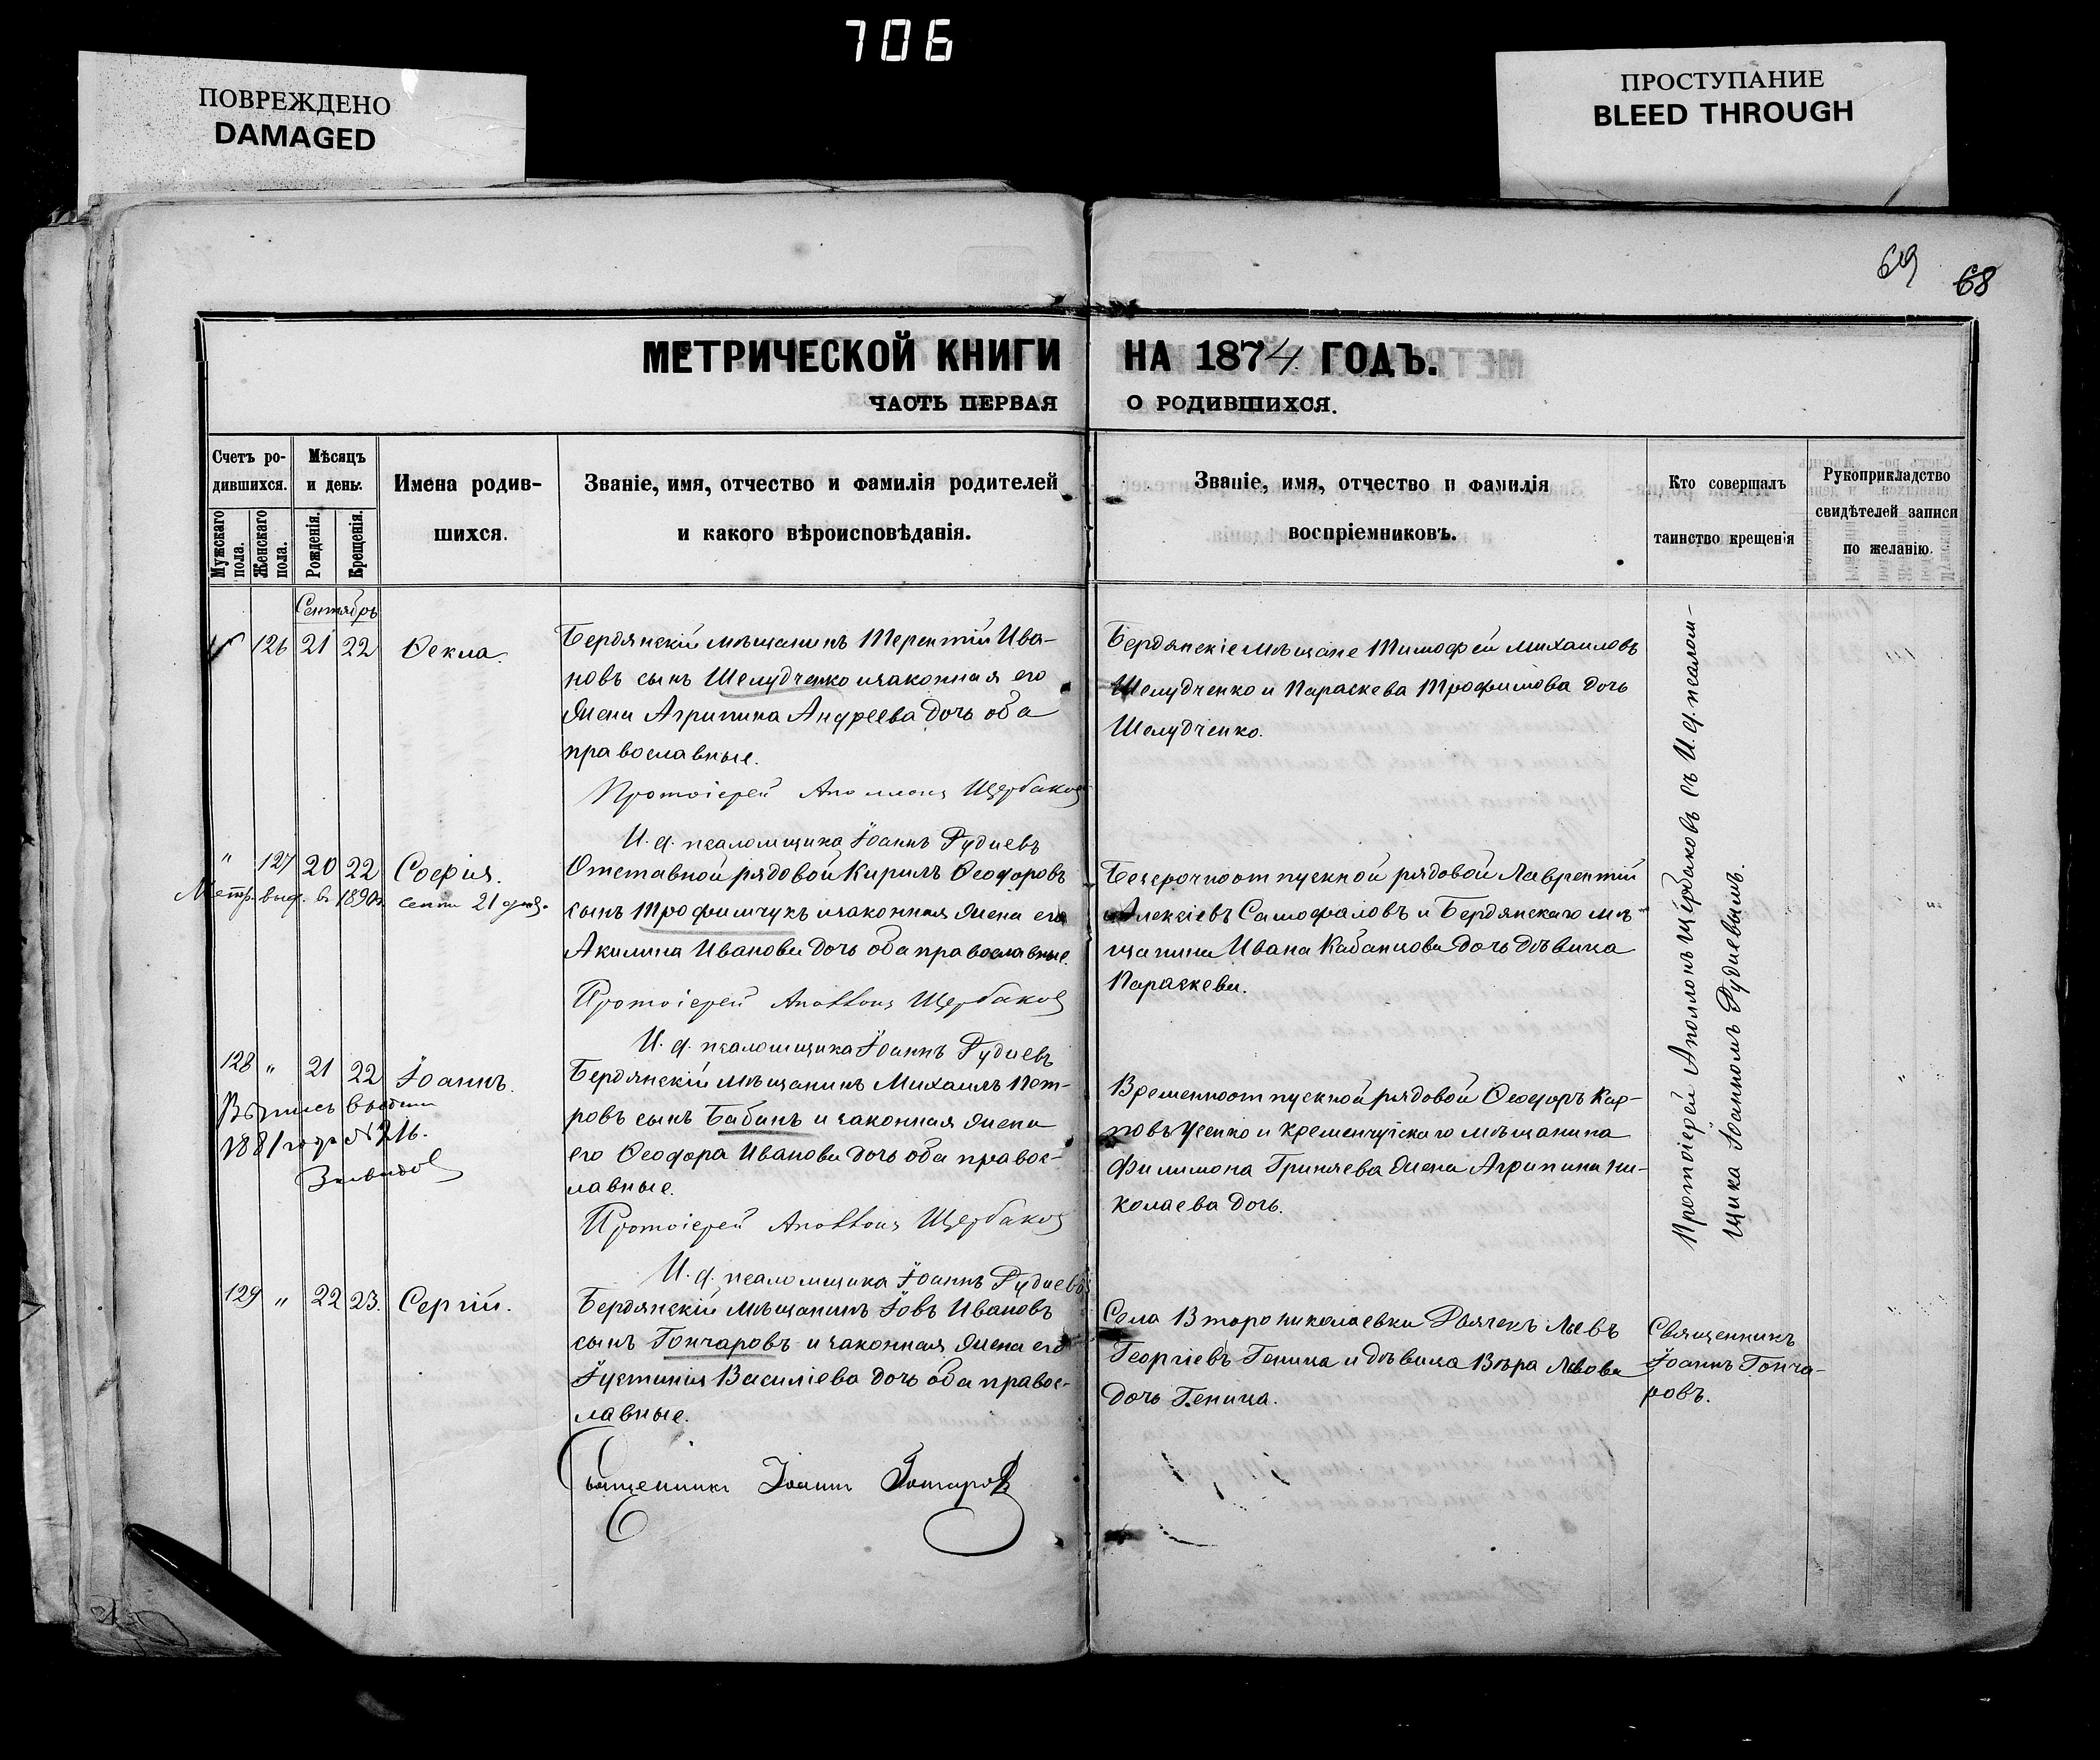 706
ПОВРЕЖДЕНО
DAMAGED
ПРОСТУПАНИЕ
BLEED THROUGH
69
68
МЕТРИЧЕСКОЙ КНИГИ НА 1874 ГОДЪ.
ЧАСТЬ ПЕРВАЯ О РОДИВШИХСЯ.
Счетъ ро-
дившихся.
Мужскаго пола.
Женскаго пола.
Мѣсяцъ
и день.
Рожденія.
Крещенія.
Имена родив-
шихся.
Званіе, имя, отчество и фамилія родителей
и какого вѣроисповѣданія.
Званіе, имя, отчество и фамилія
воспріемниковъ.
Кто совершалъ
таинство крещенія
Рукоприкладство
свидѣтелей записи
по желанію.
Сентябрь
126 21 22 Ѳекла.
Бердянскій мѣщанинъ Терентій Ива-
новъ сынъ Шелудченко и законная его
жена Агрипина Андреева дочь оба
православные.
Протоіерей Аполлонъ Щербаковъ
И. д. псаломщика Іоаннъ Рудневъ
Бердянскіе мѣщане Тимофей Михаиловъ
Шелудченко и Параскева Трофимова дочь
Шелудченко.
Протоіерей Аполлонъ Щербаковъ съ И. д. псалом-
щика Іоанномъ Рудневымъ.
" 127 20 22 Софія.
Метр. выд. въ 1890 г. сент 21 дня.
Отставной рядовой Кирилъ Ѳеодоровъ
сынъ Трофимчукъ и законная жена его
Акилина Иванова дочь оба православные.
Протоіерей Аполлонъ Щербаковъ
И. д. псаломщика Іоаннъ Рудневъ
Безсрочноотпускной рядовой Лаврентій
Алексіевъ Самофаловъ и Бердянскаго мѣ-
щанина Ивана Кабанцова дочь дѣвица
Параскева.
128 " 21 22 Іоаннъ.
Выпись выдана
1881 года № 216.
Бердянскій мѣщанинъ Михаилъ Пет-
ровъ сынъ Бабанъ и законная жена
его Ѳеодора Иванова дочь оба правос-
лавные.
Протоіерей Аполлонъ Щербаковъ
И. д. псаломщика Іоаннъ Рудневъ
Временноотпускной рядовой Ѳеодоръ Кар-
повъ Усенко и Кременчугскаго мѣщанина
Филимона Гриняева жена Агрипина Ни-
колаева дочь.
129 " 22 23. Сергій.
Бердянскій мѣщанинъ Іовъ Ивановъ
сынъ Гончаровъ и законная жена его
Іустинія Василіева дочь оба правос-
лавные.
Священникъ Іоаннъ Гончаровъ
Села Второниколаевки Дьячекъ Левъ
Георгіевъ Геница и дѣвица Вѣра Львова
дочь Геница.
Священникъ
Іоаннъ Гонча-
ровъ.